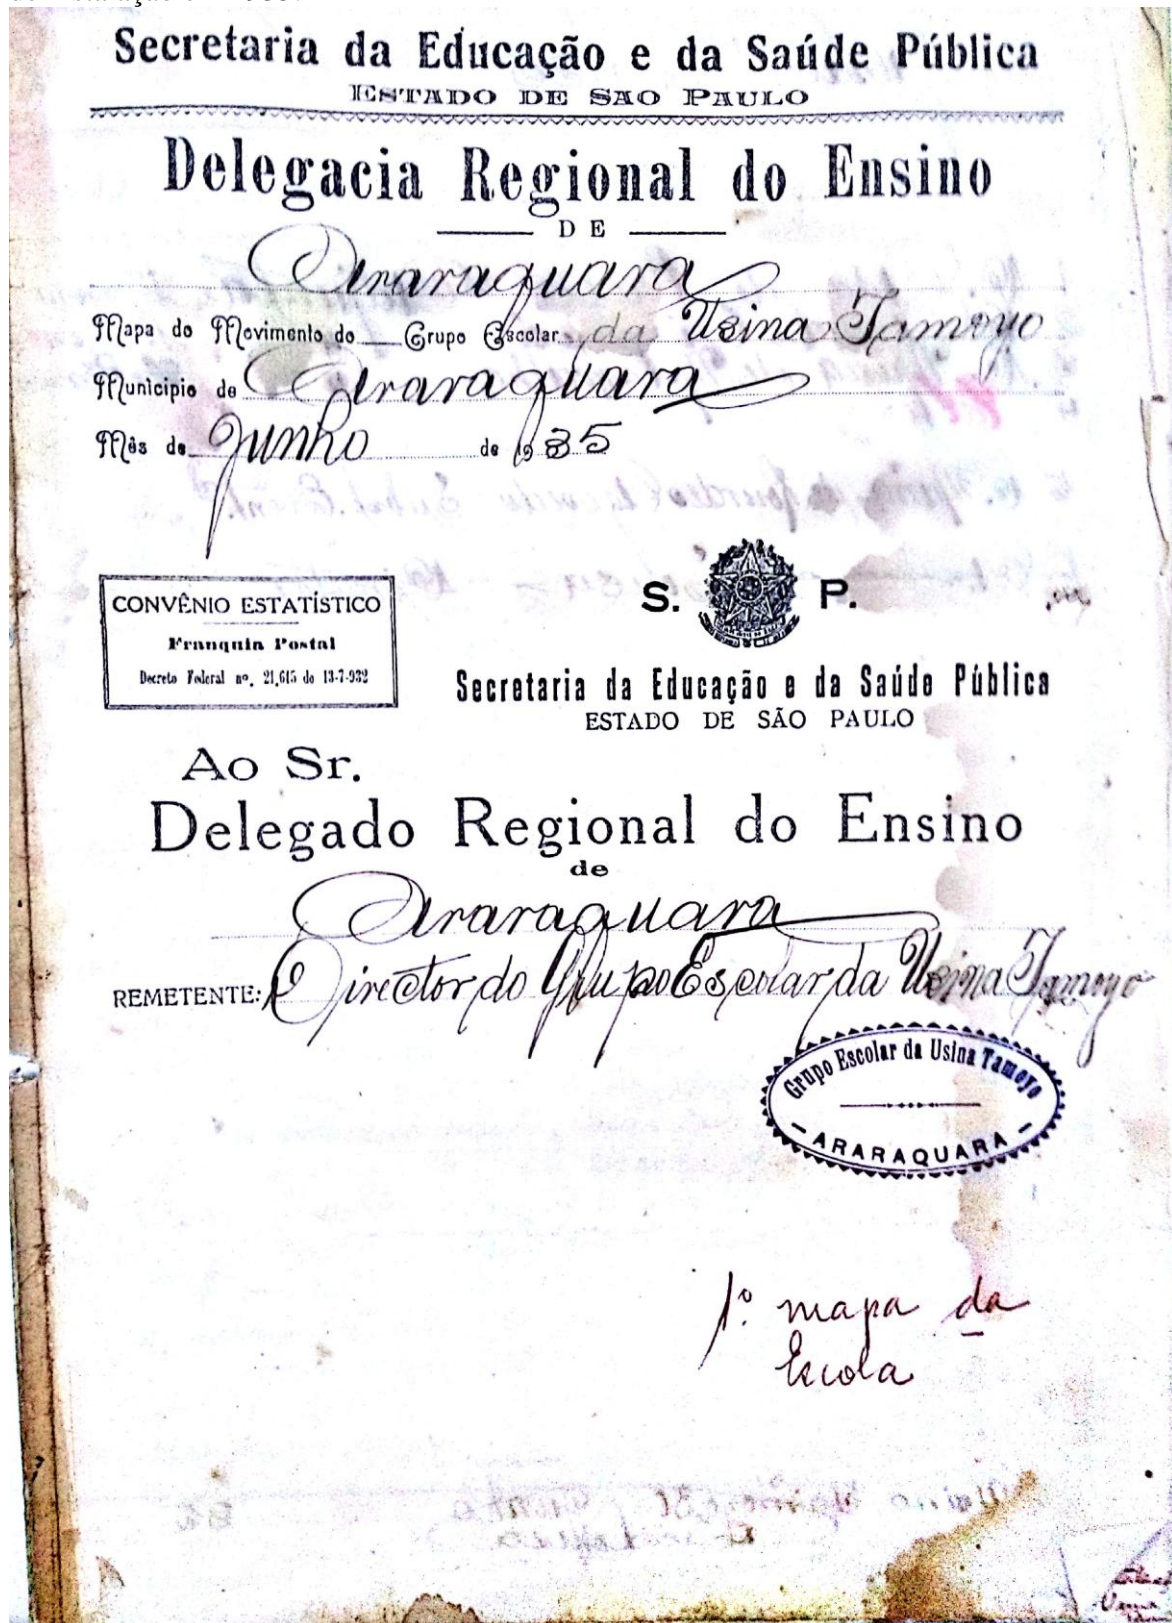 Secretaria da Educação e da Saúde Pública
ESTADO DE SAO PAULO
Delegacia Regional do Ensino
DE
Araraquara
Mapa do Movimento do Grupo Escolar da Usina Tamoyo
Municipio de Araraquara
Mês de Junho de 1935
CONVÊNIO ESTATÍSTICO
Franquia Postal
Decreto Federal nº. 21,615 de 13-7-932
S. P.
Secretaria da Educação e da Saúde Pública
ESTADO DE SÃO PAULO
Ao Sr.
Delegado Regional do Ensino
de
Araraquara
REMETENTE: Director do Grupo Escolar da Usina Tamoyo
Grupo Escolar da Usina Tamoyo
- ARARAQUARA -
1º mapa da
Escola